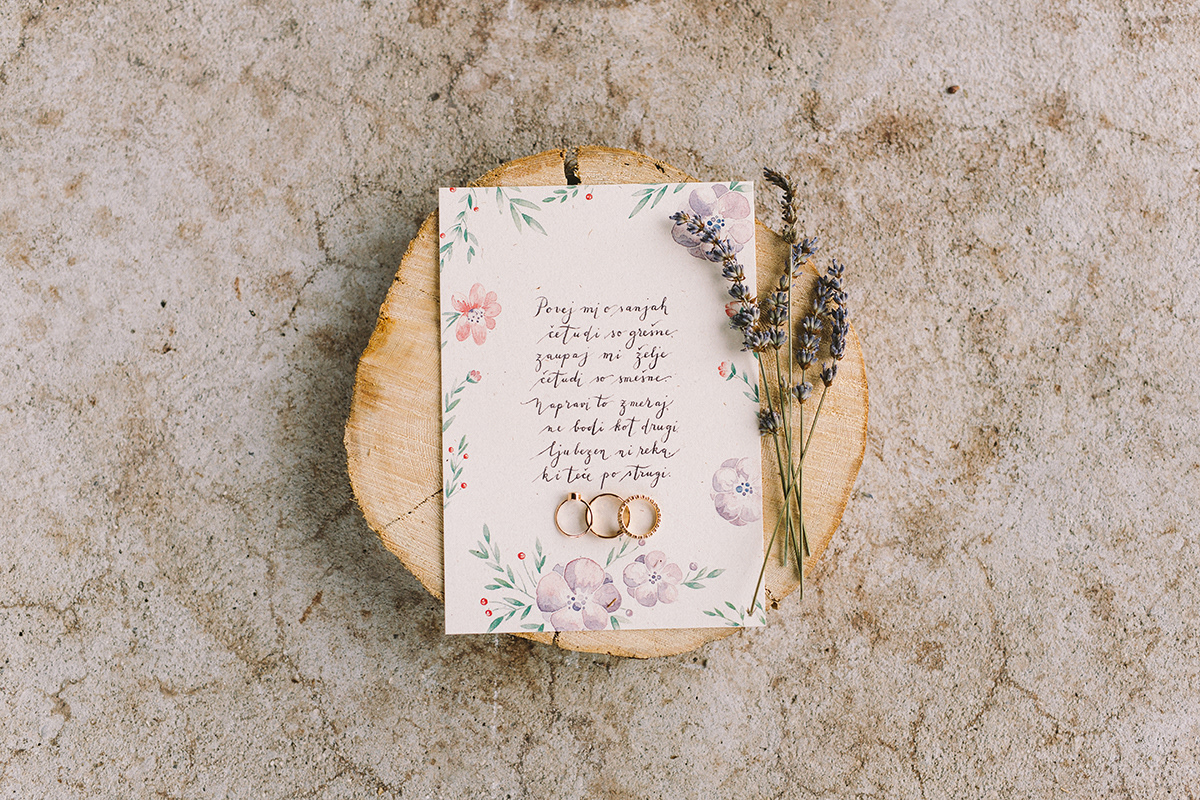 Povej mi o sanjah
četudi so grešne,
zaupaj mi želje
četudi so smešne.
Napravi to zmeraj,
ne bodi kot drugi
ljubezen ni reka,
ki teče po strugi.